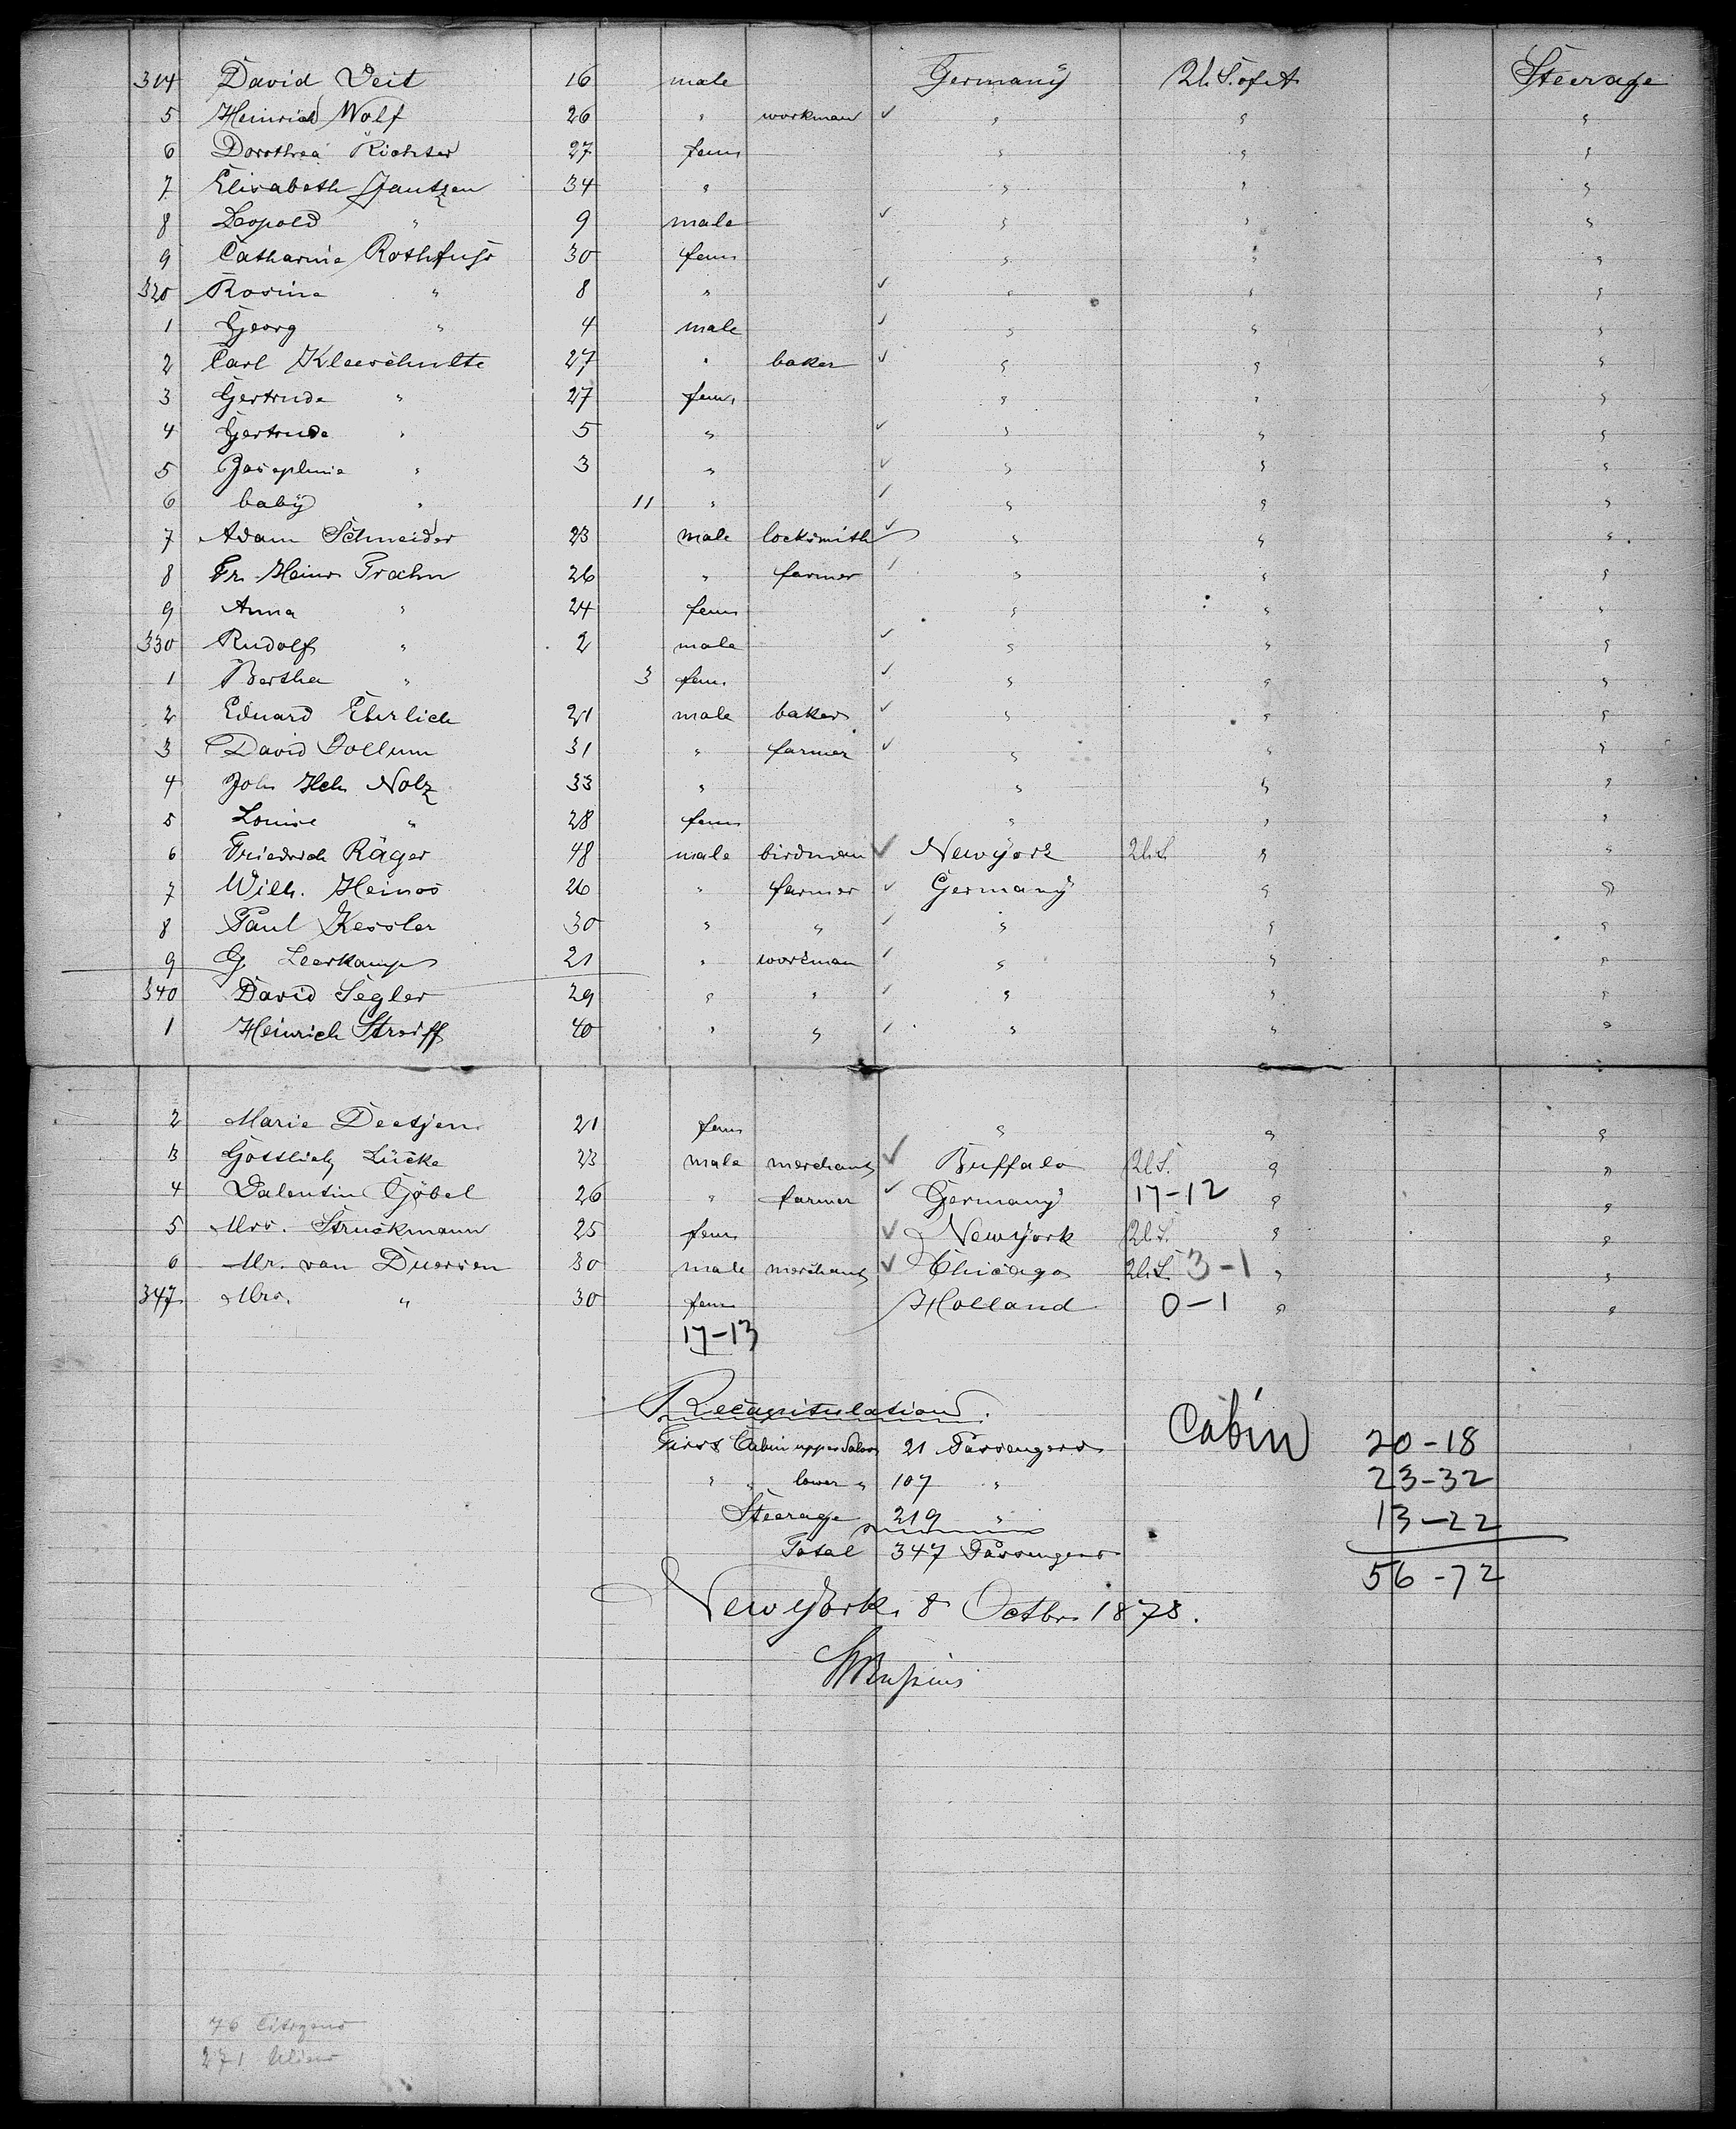 314 David Veit 16 male Germany U.S. of A Steerage
5 Heinrich Wolf 26 " workman ✓ " " "
6 Dorothea Richter 27 fem " " "
7 Elisabeth Jantzen 34 " " " "
8 Leopold " 9 male ✓ " " "
9 Catharine Rothfuss 30 fem " " "
320 Rosine " 8 " ✓ " " "
1 Georg " 4 male ✓ " " "
2 Carl Kleeschulte 27 " baker ✓ " " "
3 Gertrude " 27 fem. " " "
4 Gertrude " 5 " ✓ " " "
5 Josephine " 3 " ✓ " " "
6 baby " 11 " ✓ " " "
7 Adam Schneider 23 male locksmith ✓ " " "
8 Fr. Heinr. Prahn 26 " farmer ✓ " " "
9 Anna " 24 fem " " "
330 Rudolf " 2 male ✓ " " "
1 Bertha " 3 fem. ✓ " " "
2 Eduard Ehrlich 21 male baker ✓ " " "
3 David Vollum 31 " farmer ✓ " " "
4 Joh. Hch. Nolz 33 " " " "
5 Louise " 28 fem " " "
6 Friedrich Räger 48 male birdman ✓ Newyork U.S. " "
7 Wilh. Heinos 26 " farmer ✓ Germany " "
8 Paul Kessler 30 " " ✓ " " "
9 G. Leerkamp 21 " workman ✓ " " "
340 David Segler 29 " " ✓ " " "
1 Heinrich Streiff 40 " " ✓ " " "
2 Marie Deetjen 21 fem " " "
3 Gottlieb Lücke 23 male merchant ✓ Buffalo U.S. " "
4 Valentin Göbel 26 " farmer ✓ Germany 17-12 " "
5 Mrs. Struckmann 25 fem. ✓ Newyork U.S. " "
6 Mr. van Duersen 30 male merchant ✓ Chicago U.S. 3-1 " "
347 Mrs. " 30 fem Holland 0-1 " "
17-13
Recapitulation.
First Cabin upper Saloon 21 Passengers
" " lower " 107 "
Steerage 219 "
Total 347 Passengers
Cabin 20-18
23-32
13-22
56-72
Newyork, 8 Octbr. 1878.
76 Citizens
271 Aliens